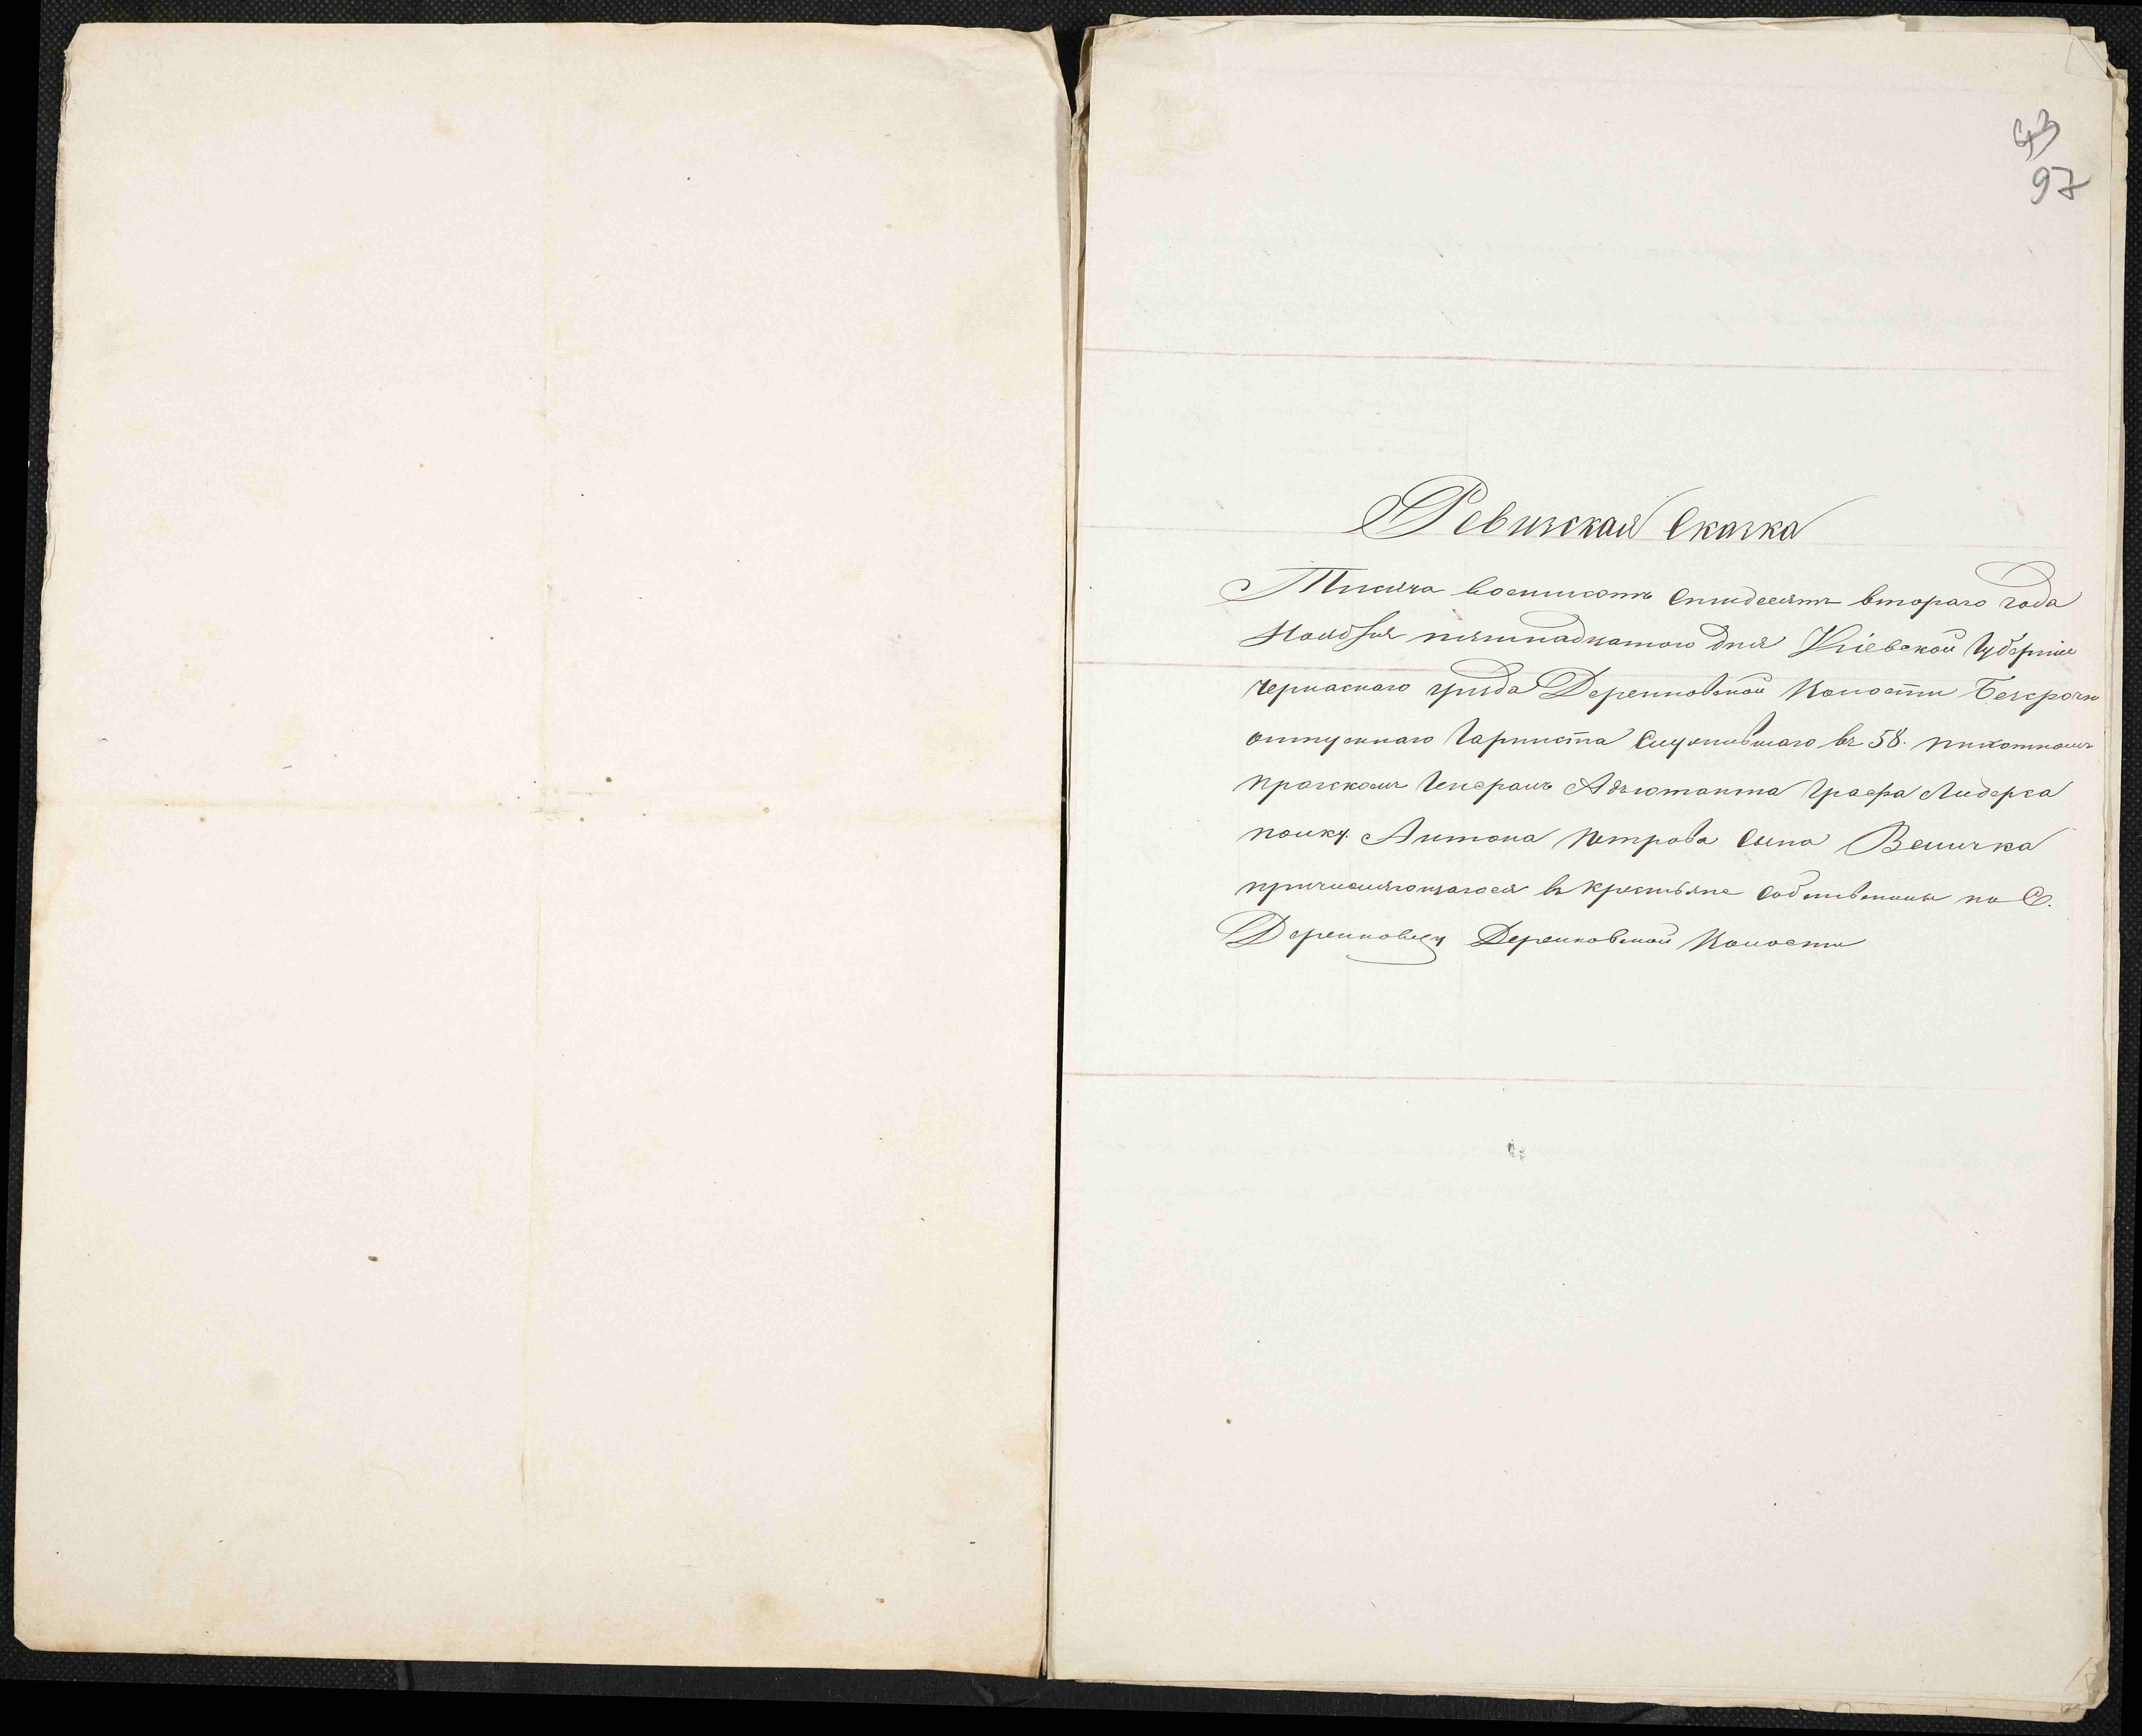 43
97
Ревизская Сказка
Тысяча восемьсотъ Семидесятъ втораго года
Ноября пятнадцатого дня Кіевской Губерніи
Черкаскаго уезда Деренковской Волости Безсрочно
отпускнаго Гарниста Служившаго въ 58. пехотномъ
пражскомъ Генералъ Адъютанта Графа Лидерса
полку. Антона Петрова Сына Величка
причисляющагося въ крестьяне собственники по С.
Деренковцу Деренковской Волости